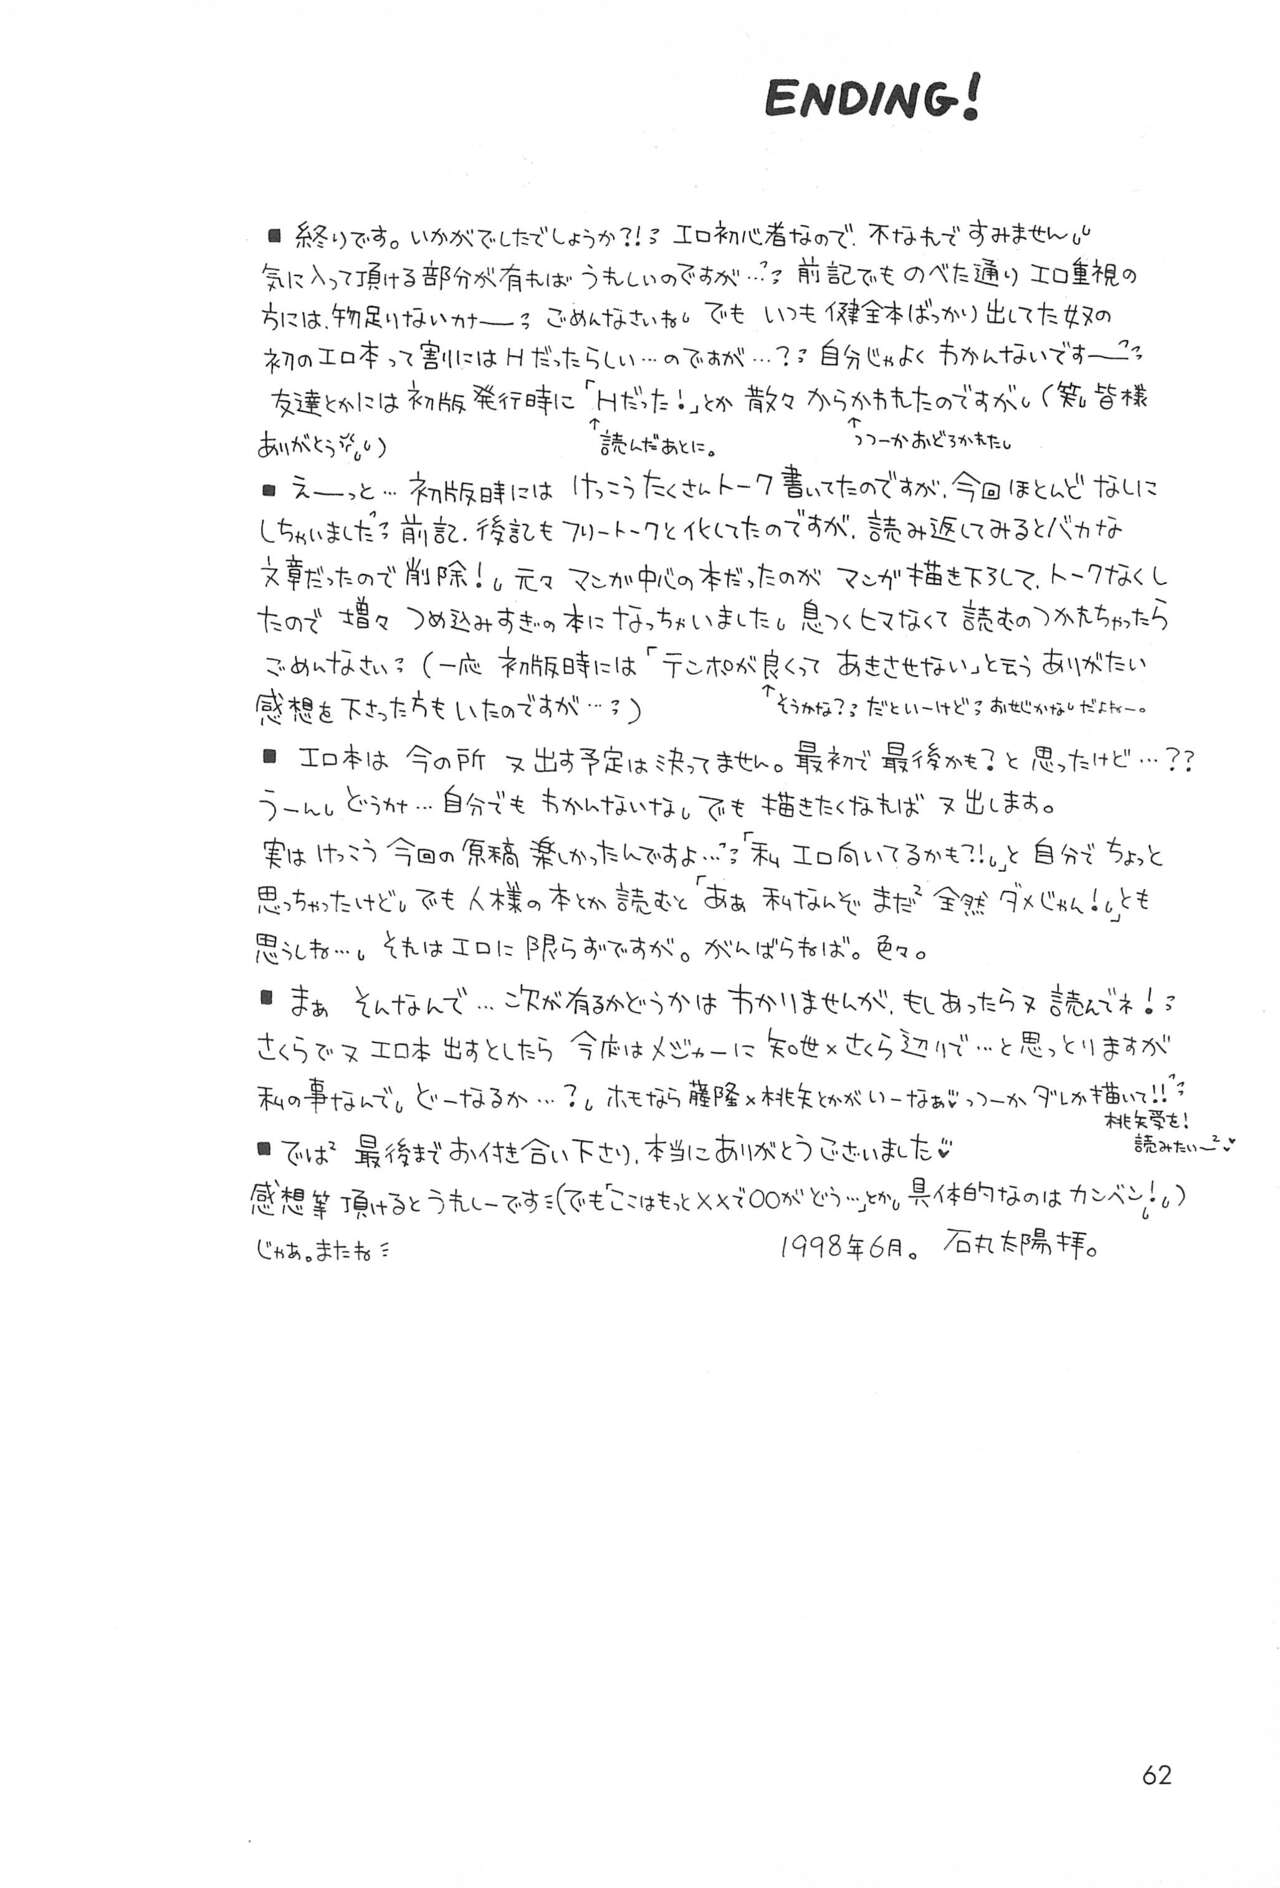 ENDING!
■ 終りです。いかがでしたでしょうか?! エロ初心者なので、不なれですみません
気に入って頂ける部分が有ればうれしいのですが… 前記でものべた通りエロ重視の
方には、物足りないカナー ごめんなさいね でもいつも健全本ばっかり出してた奴の
初のエロ本って割にはHだったらしい…のですが…? 自分じゃよくわかんないですー
友達とかには初版発行時に「Hだった!」とか散々からかわれたのですが(笑)皆様
↑読んだあとに。
↑っつーかおどろかれた
ありがとう)
■ えーっと… 初版時にはけっこうたくさんトーク書いてたのですが、今回ほとんどなしに
しちゃいました 前記、後記もフリートークと化してたのですが、読み返してみるとバカな
文章だったので削除! 元々マンガ中心の本だったのがマンガ描き下ろして、トークなくし
たので増々つめ込みすぎの本になっちゃいました 息つくヒマなくて読むのつかれちゃったら
ごめんなさい (一応初版時には「テンポが良くってあきさせない」と云うありがたい
↑そうかな? だといーけど おせじかな だよねー。
感想を下さった方もいたのですが…)
■ エロ本は今の所又出す予定は決ってません。最初で最後かも?と思ったけど…??
うーん どうカナ…自分でもわかんないな でも描きたくなれば又出します。
実はけっこう今回の原稿楽しかったんですよ…「私エロ向いてるかも?!」と自分でちょっと
思っちゃったけど でも人様の本とか読むと「あぁ私なんぞまだ²全然ダメじゃん!」とも
思うしね… それはエロに限らずですが。がんばらねば。色々。
■ まぁそんなんで…次が有るかどうかはわかりませんが、もしあったら又読んでネ!
さくらで又エロ本出すとしたら今度はメジャーに知世×さくら辺りで…と思っとりますが
私の事なんで どーなるか…? ホモなら藤隆×桃矢とかがいーなぁ♡っつーかダレか描いて!!
桃矢受を!
読みたい〜²♡
■ では²最後までお付き合い下さり、本当にありがとうございました♡
感想等頂けるとうれしーです(でも「ここはもっと××で○○がどう…」とか具体的なのはカンベン!)
じゃあ。またね
1998年6月。石丸太陽拝。
62